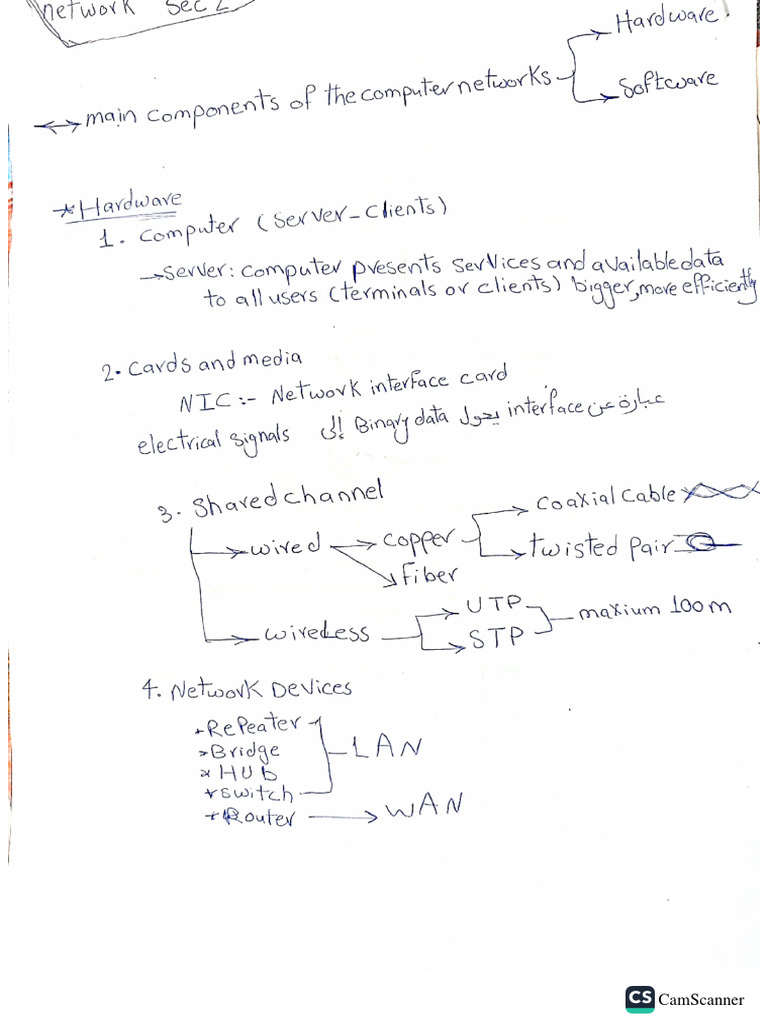 network sec 2
Hardware.
↔ main components of the computer networks
Software
* Hardware
1. computer (server-clients)
→ server: computer presents services and available data
to all users (terminals or clients) bigger, more efficiently
2. cards and media
NIC:- Network interface card
عبارة عن interface يحول Binary data إلى
electrical signals
3. Shared channel
coaxial cable
→ wired → copper
→ twisted pair
fiber
→ wireless
UTP
STP
maxium 100m
4. Network Devices
* Repeater
* Bridge
LAN
* HUb
* switch
* Router → WAN
CS CamScanner